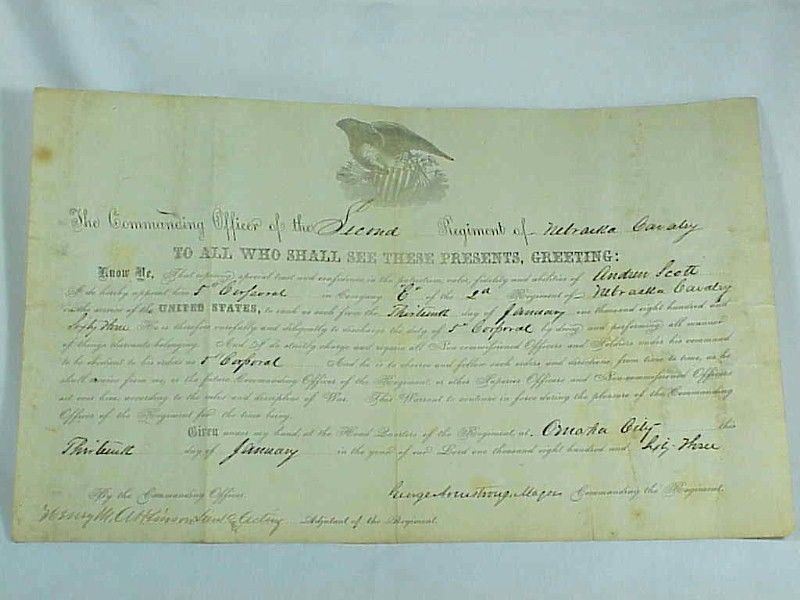 The Commanding Officer of the Second Regiment of Nebraska Cavalry
TO ALL WHO SHALL SEE THESE PRESENTS, GREETING:
Know Ye, That reposing special trust and confidence in the patriotism, valor, fidelity and abilities of Andrew Scott
I do hereby appoint him 5th Corporal in Company "C" of the 2d Regiment of Nebraska Cavalry
in the service of the UNITED STATES, to rank as such from the Thirteenth day of January one thousand eight hundred and
Sixty Three He is therefore carefully and diligently to discharge the duty of 5th Corporal by doing and performing all manner
of things thereunto belonging. And I do strictly charge and require all Non-commissioned Officers and Soldiers under his command
to be obedient to his orders as 5th Corporal And he is to observe and follow such orders and directions, from time to time, as he
shall receive from me, or the future Commanding Officer of the Regiment, or other Superior Officers and Non-commissioned Officers
set over him, according to the rules and discipline of War. This Warrant to continue in force during the pleasure of the Commanding
Officer of the Regiment for the time being.
Given under my hand, at the Head Quarters of the Regiment, at Omaha City this
Thirteenth day of January in the year of our Lord one thousand eight hundred and Sixty Three
By the Commanding Officer.
George Armstrong Major Commanding the Regiment.
Henry M. Atkinson Acting Adjutant of the Regiment.